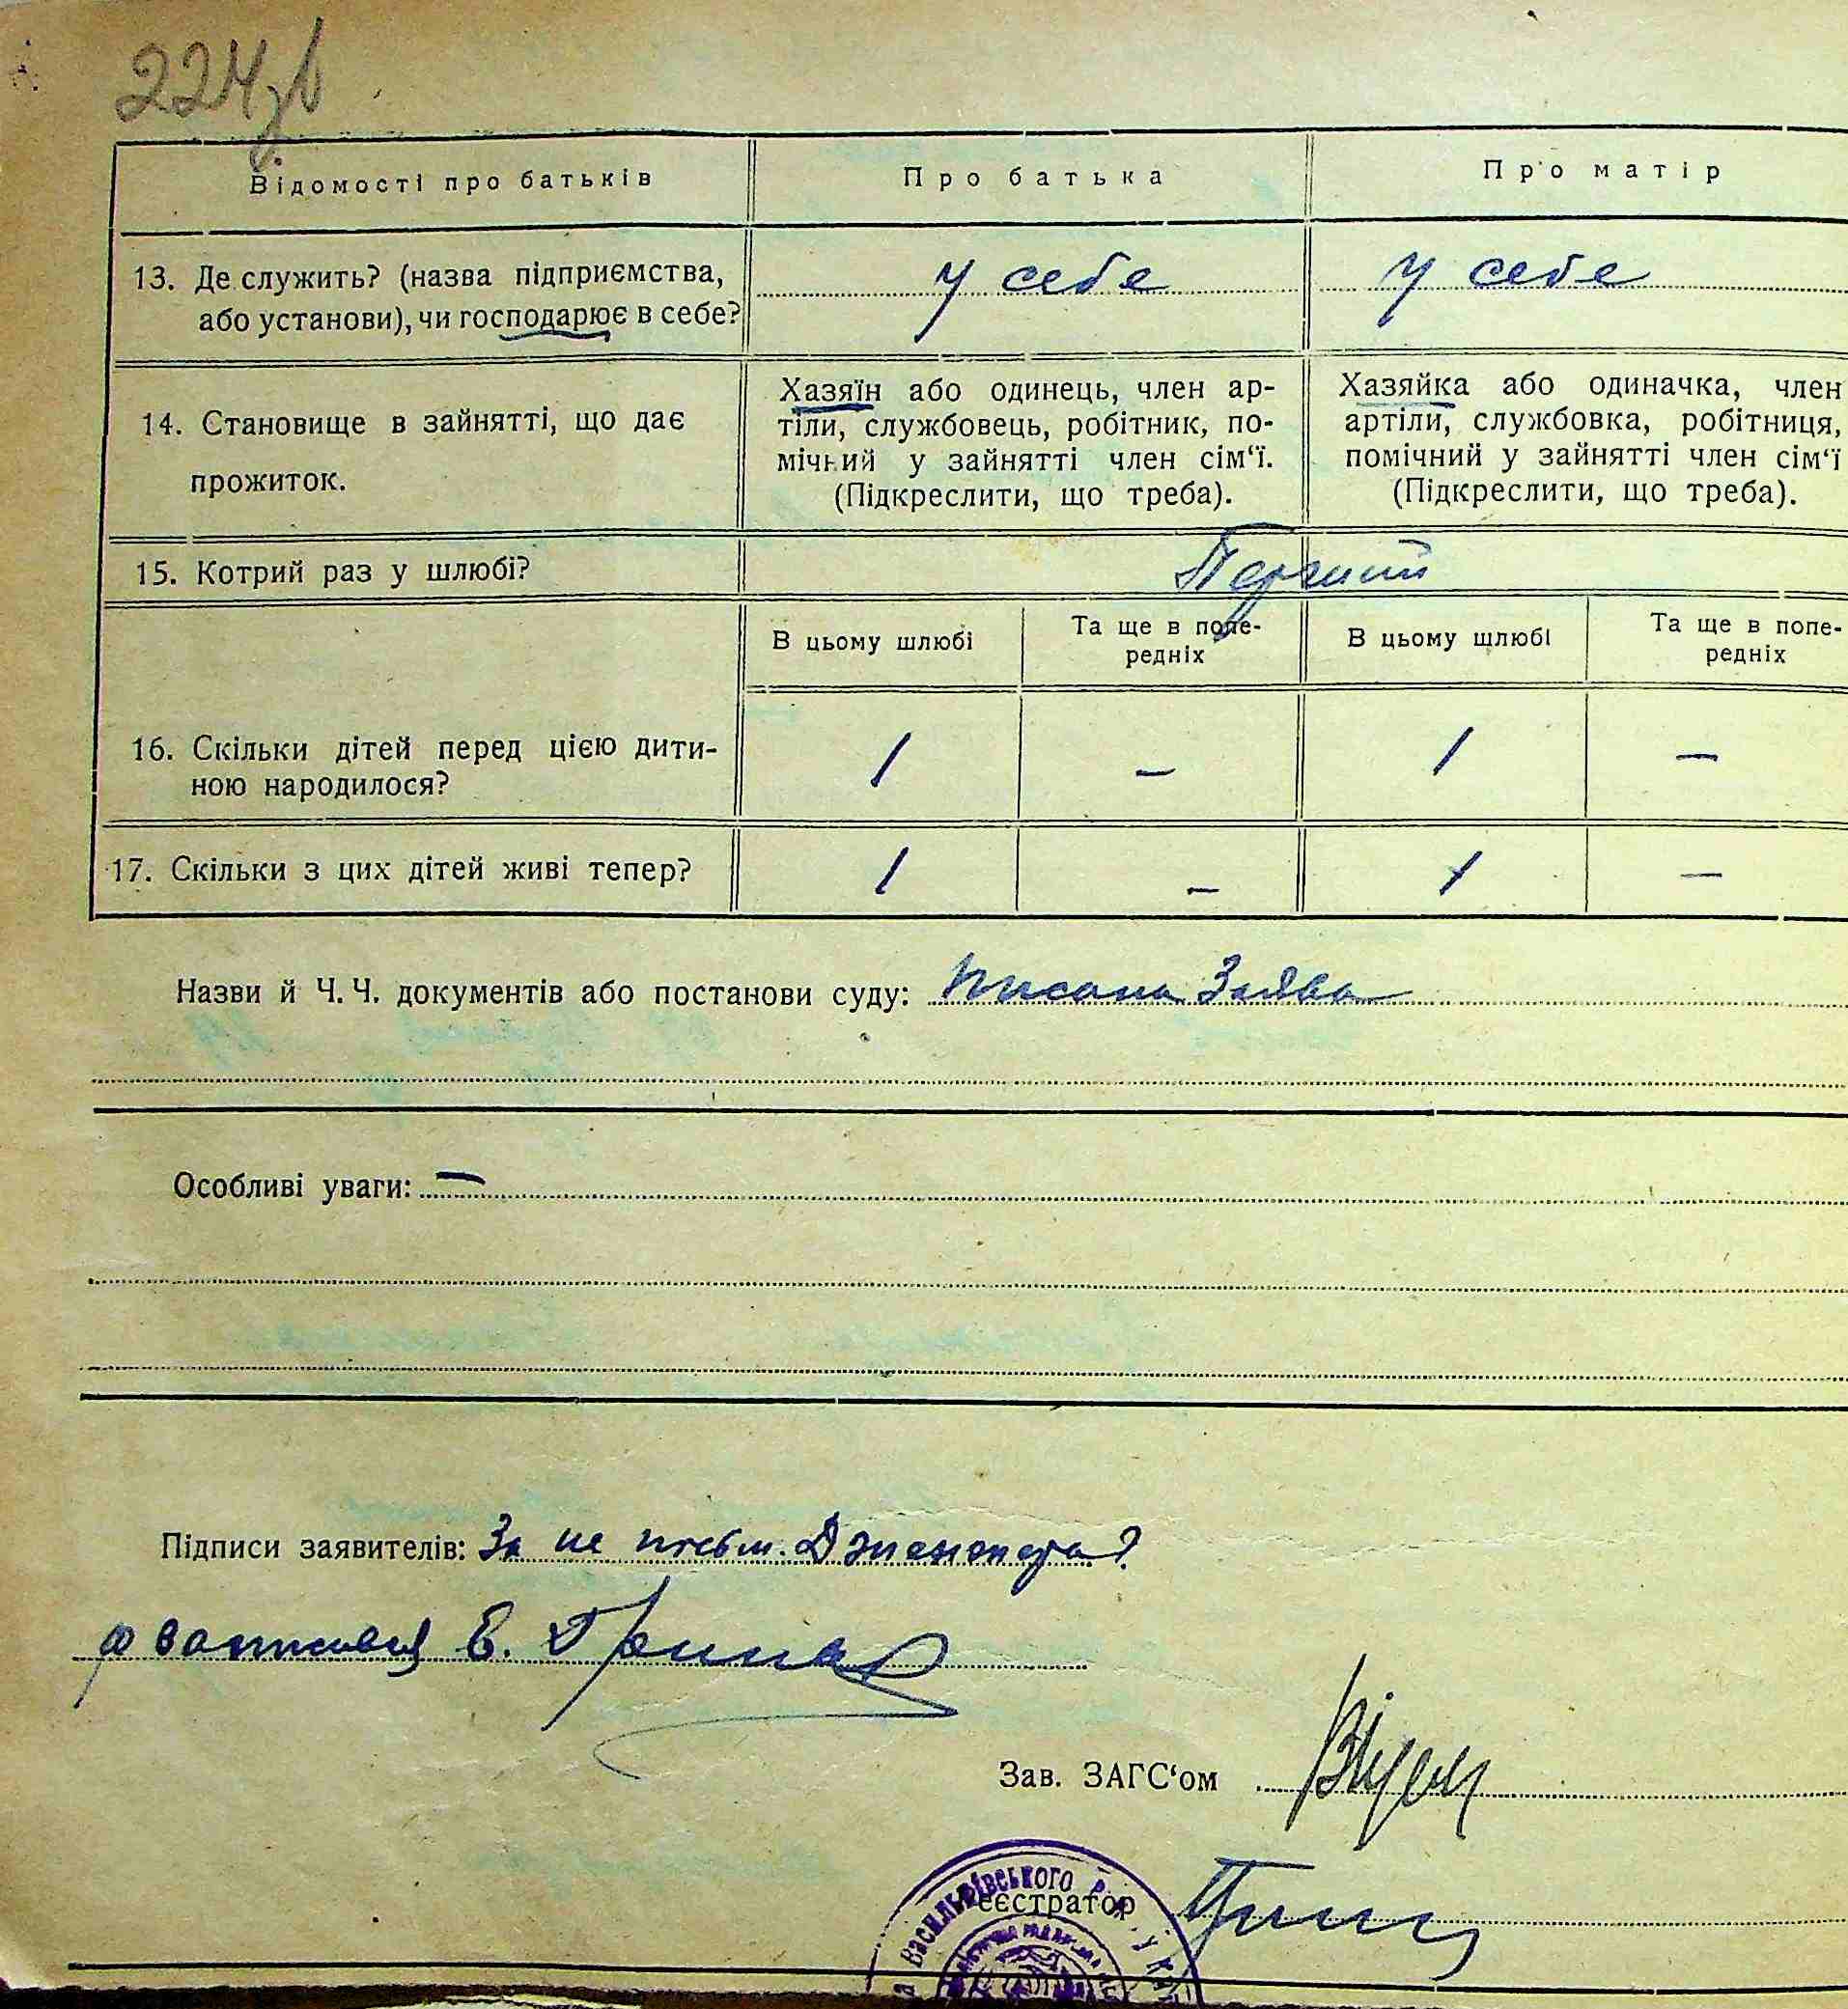 224зв
Відомості про батьків
Про батька
Про матір
13. Де служить? (назва підприємства,
або установи), чи господарює в себе?
у себе
у себе
14. Становище в зайнятті, що дає
прожиток.
Хазяїн або одинець, член ар-
тіли, службовець, робітник, по-
мічний у зайнятті член сім‘ї.
(Підкреслити, що треба).
Хазяйка або одиначка, член
артіли, службовка, робітниця,
помічний у зайнятті член сім‘ї
(Підкреслити, що треба).
15. Котрий раз у шлюбі?
Перший
В цьому шлюбі
Та ще в попе-
редніх
В цьому шлюбі
Та ще в попе-
редніх
16. Скільки дітей перед цією дити-
ною народилося?
1
—
1
—
17. Скільки з цих дітей живі тепер?
1
—
1
—
Назви й Ч. Ч. документів або постанови суду: писана Заява
Особливі уваги: —
Підписи заявителів: За не письм.
Е.
Зав. ЗАГС‘ом
Реєстратор
Васильківського р.